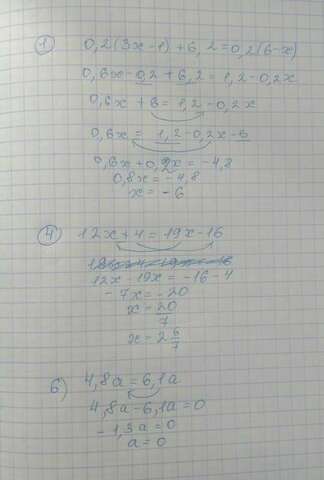 1) 0,2(3x-1)+6,2=0,2(6-x)
0,6x-0,2+6,2=1,2-0,2x
0,6x+6=1,2-0,2x
0,6x=1,2-0,2x-6
0,6x+0,2x=-4,8
0,8x=-4,8
x=-6
4) 12x+4=19x-16
12x-19x=-16-4
-7x=-20
x=20/7
x=2 6/7
6) 4,8a=6,1a
4,8a-6,1a=0
-1,3a=0
a=0